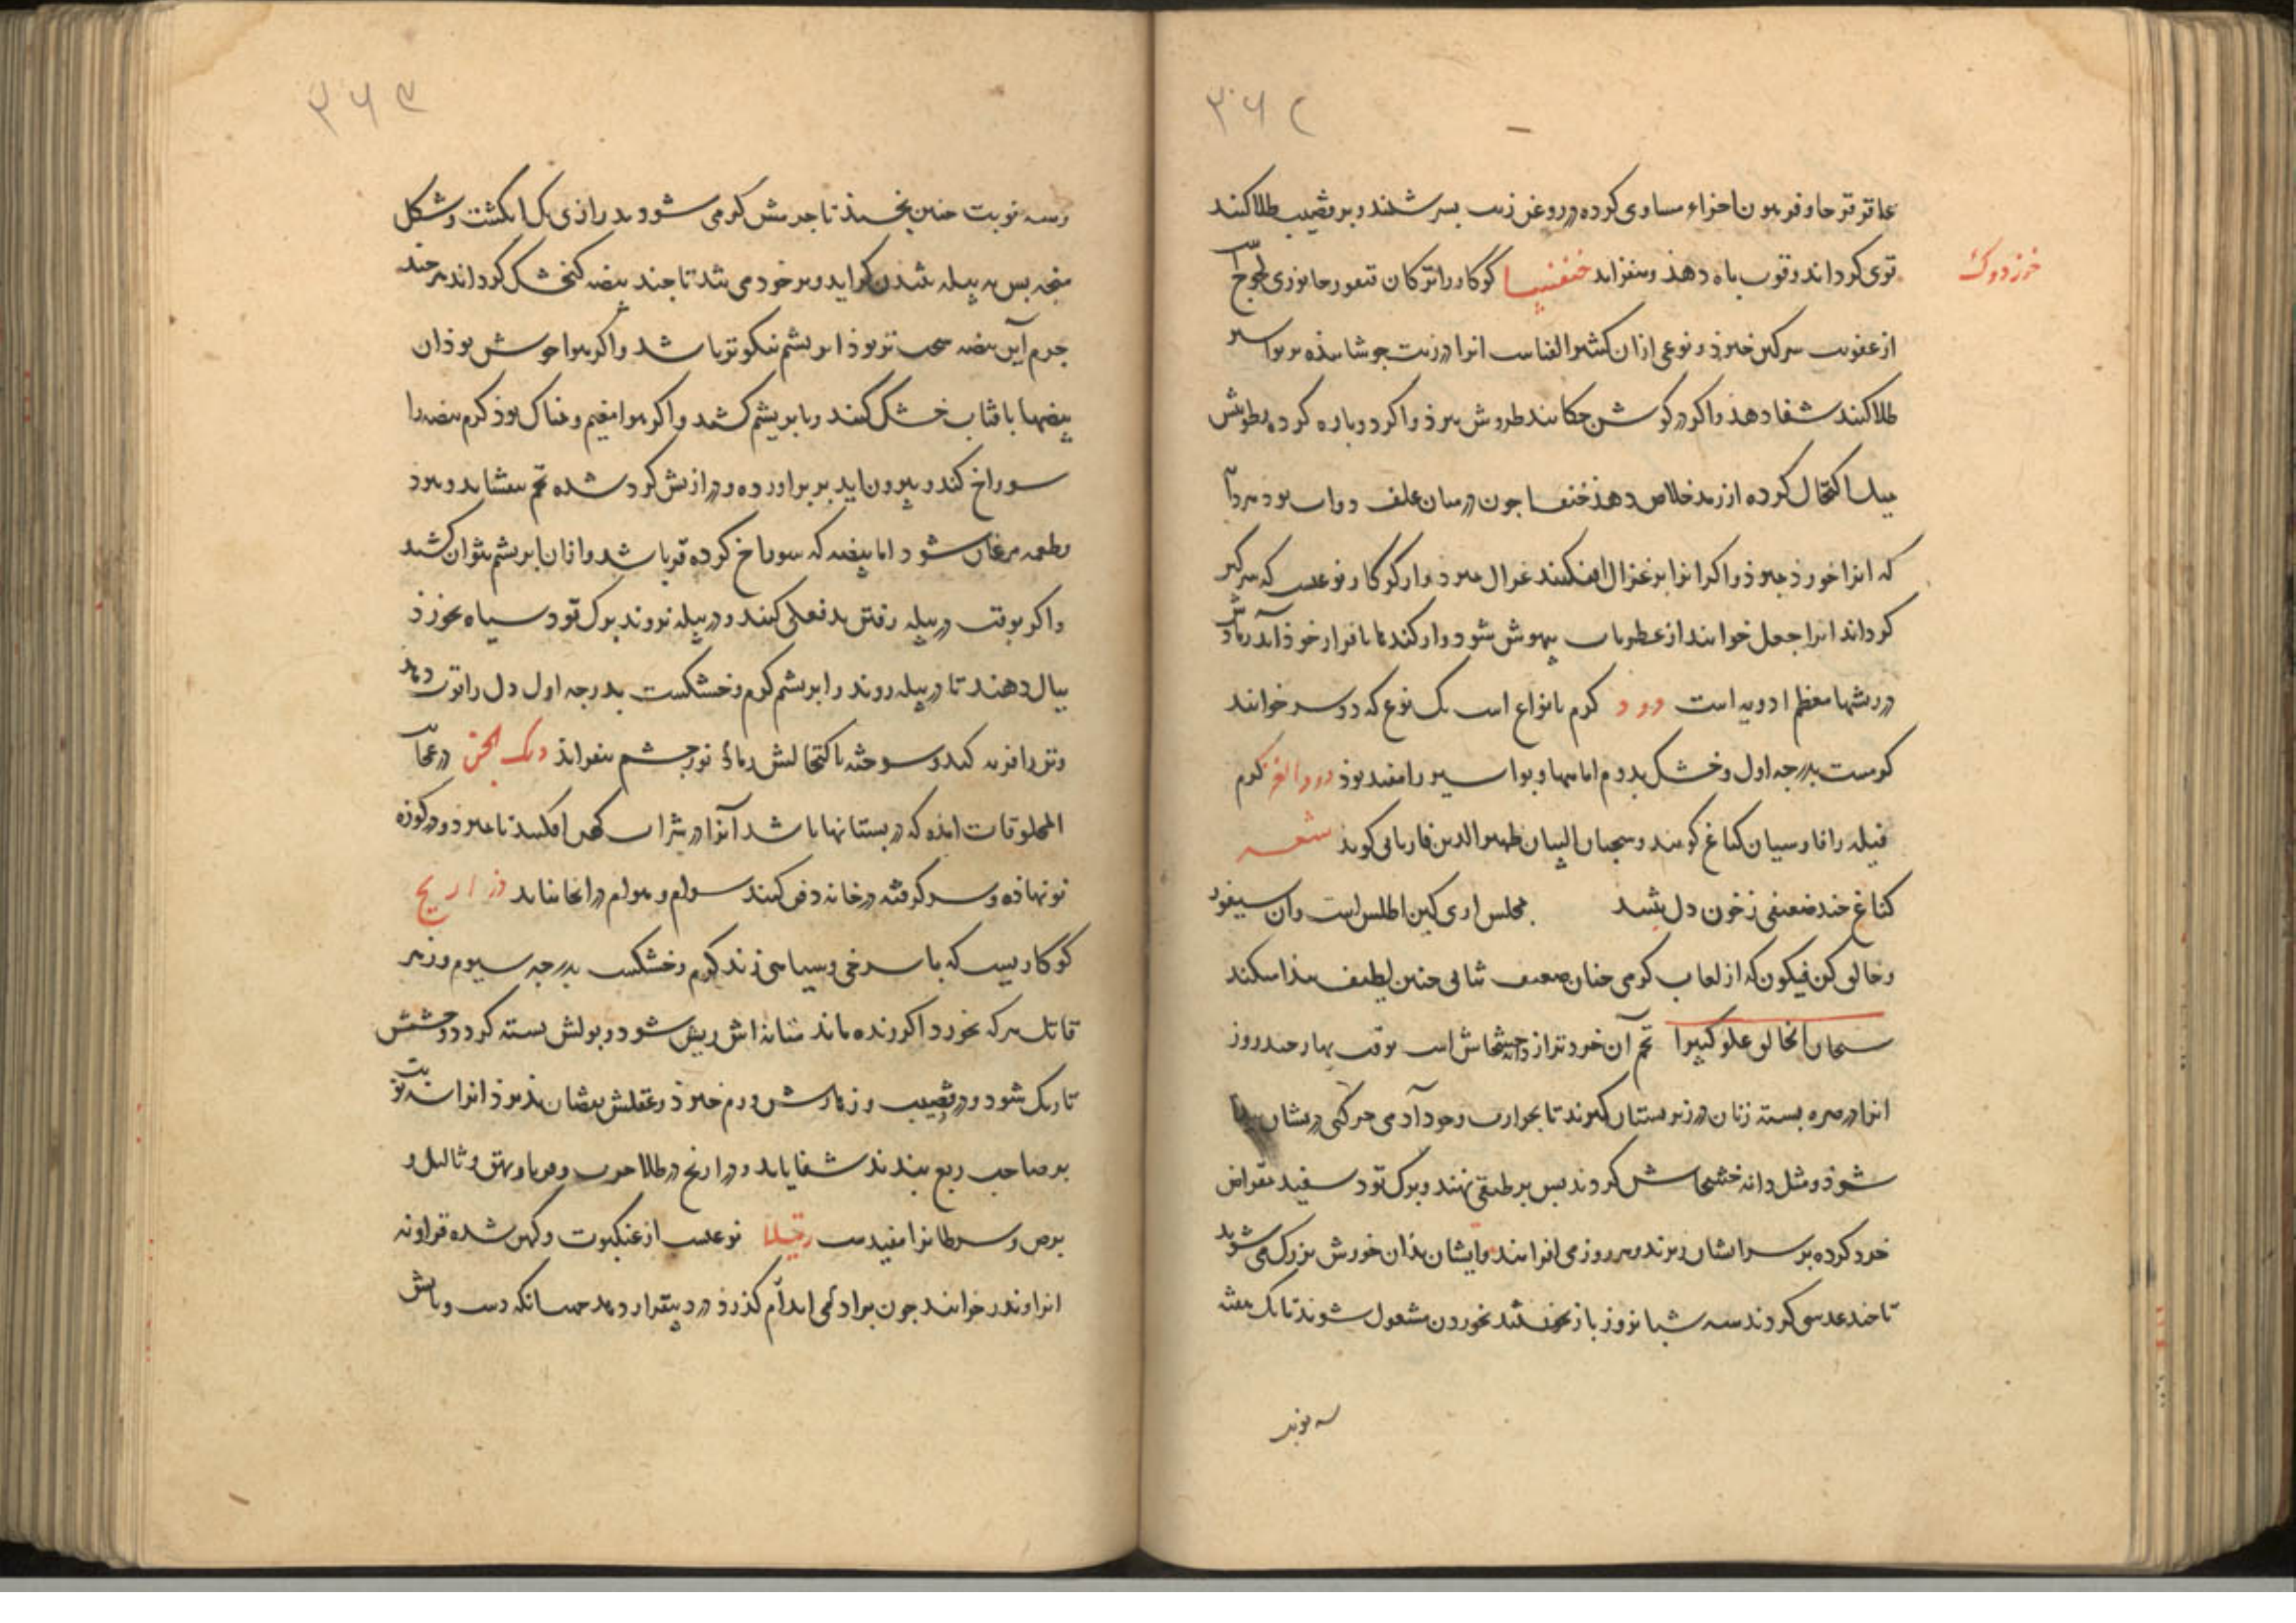 ۳۶۲
عاقرقرحا و فربیون اجزاء مساوی کرده در روغن زیت بسرشند و بر قضیب طلا کنند
خرزدوک
قوی کرداند و قوت باه دهد و بیفزاید خنفسا کوکار و اترکان قنغور جانوری لجوج
از عفونت سرکین خیزد و نوعی ازان کشیر الفناست انرا در زیت جوشانیده بر بواسیر
طلا کنند شفا دهد و اکر در کوش جکانند طروش ببرد و اکر دوباره کرده رطوبتش
بمیل اکتحال کرده از رمد خلاص دهد خنفسا جون در میان علف دواب بود هر دابه
که انرا خورد بمیرد و اکر انرا بر غزال افکنند غزال بمیرد و از کوکار نوعیست که سرکین
کرداند انرا جعل خوانند از عطریات بیهوش شود
در ریشها معظم ادویه است دود کرم بانواع است یک نوع که دوسر خوانند
کرمست بدرجه اول و خشک بدوم اماسها و بواسیر را مفید بود دود القز کرم
فیله را فارسیان کناغ کویند و سحبان البیان ظهیر الدین فاریابی کوید شعر
کناغ جند ضعیفی ز خون دل بتند بمجلس اری کین اطلس است وان سیفور
و خالق کن فیکون که از لعاب کرمی جنان ضعیف ثنائی جنین لطیف بیدا میکند
سبحان الخالق علو کبیرا تخم آن خردتر از دانه خشخاش است بوقت بهار جند روز
انرا در صره بسته زنان در زیر بستان کیرند تا بحرارت وجود آدمی حرکتی دریشان بیدا
شود و مثل دانه خشخاش کردند بس بر طبقی نهند و برک تود سفید بمقراض
خرد کرده بر سر ایشان ریزند و هر روز می افزایند و ایشان بذان خورش بزرک می شوند
تا جند عدسی کردند سه شبانروز باز خفتند بخوردن مشغول شوند تا یک هفته
سه نوبت
۳۶۳
و سه نوبت جنین بخسبند تا جرمش کرمی شود بدرازی یک انکشت و شکل
بنجه بس به بیله تنیدن کراید و بر خود می تند تا جند بیضه کنجشک کرداند هر جند
جرم آین بیضه سخت تر بود ابریشم نیکوتر باشد و اکر هوا خوش بود ان
بیضها بافتاب خشک کنند و با بریشم کشند و اکر هوا مغیم و نمناک بود کرم بیضه را
سوراخ کند و بیرون اید بر براورده و درازیش کرد شده تخم بیفشاند و بمیرد
و طعمه مرغان شود اما بیضه که سوراخ کرده قز باشد و ازان ابریشم نتوان کشید
و اکر بوقت در بیله رفتن بدفعلی کنند و در بیله نروند برک تود سیاه بخورد
بیال دهند تا در بیله روند و ابریشم کرم و خشکست بدرجه اول دل را قوت دهد
و تن را فربه کند و سوخته با کتحالش رمد نور جشم بیفزاید دیک الجن در عجایب
المخلوقات امده که در بستانها باشد آنرا در شراب کهن افکنند تا بمیرد و در کوزه
نو نهاده و سر کرفته در خانه دفن کنند سوام و هوام در انجا نیاید ذراریح
کوکاریست که با سرخی و سیاهی زند کرم و خشکست بدرجه سیوم و زهر
قاتل هر که بخورد اکر زنده ماند مثانه اش ریش شود و بولش بسته کردد و جشمش
تاریک شود و در قضیب و زهارش ورم خیزد و عقلش نقصان پذیرد انرا
بر صاحب ربع بندند شفا یابد و ذراریح در طلا جرب و قوبا و بهق و ثالیل و
برص و سرطانرا مفیدست رتیلا نوعیست از عنکبوت و کهن شده قراونه
انرا وندر خوانند جون بر ادمی اندام کذرد درد بیقرار دهد جنانکه دست و پایش